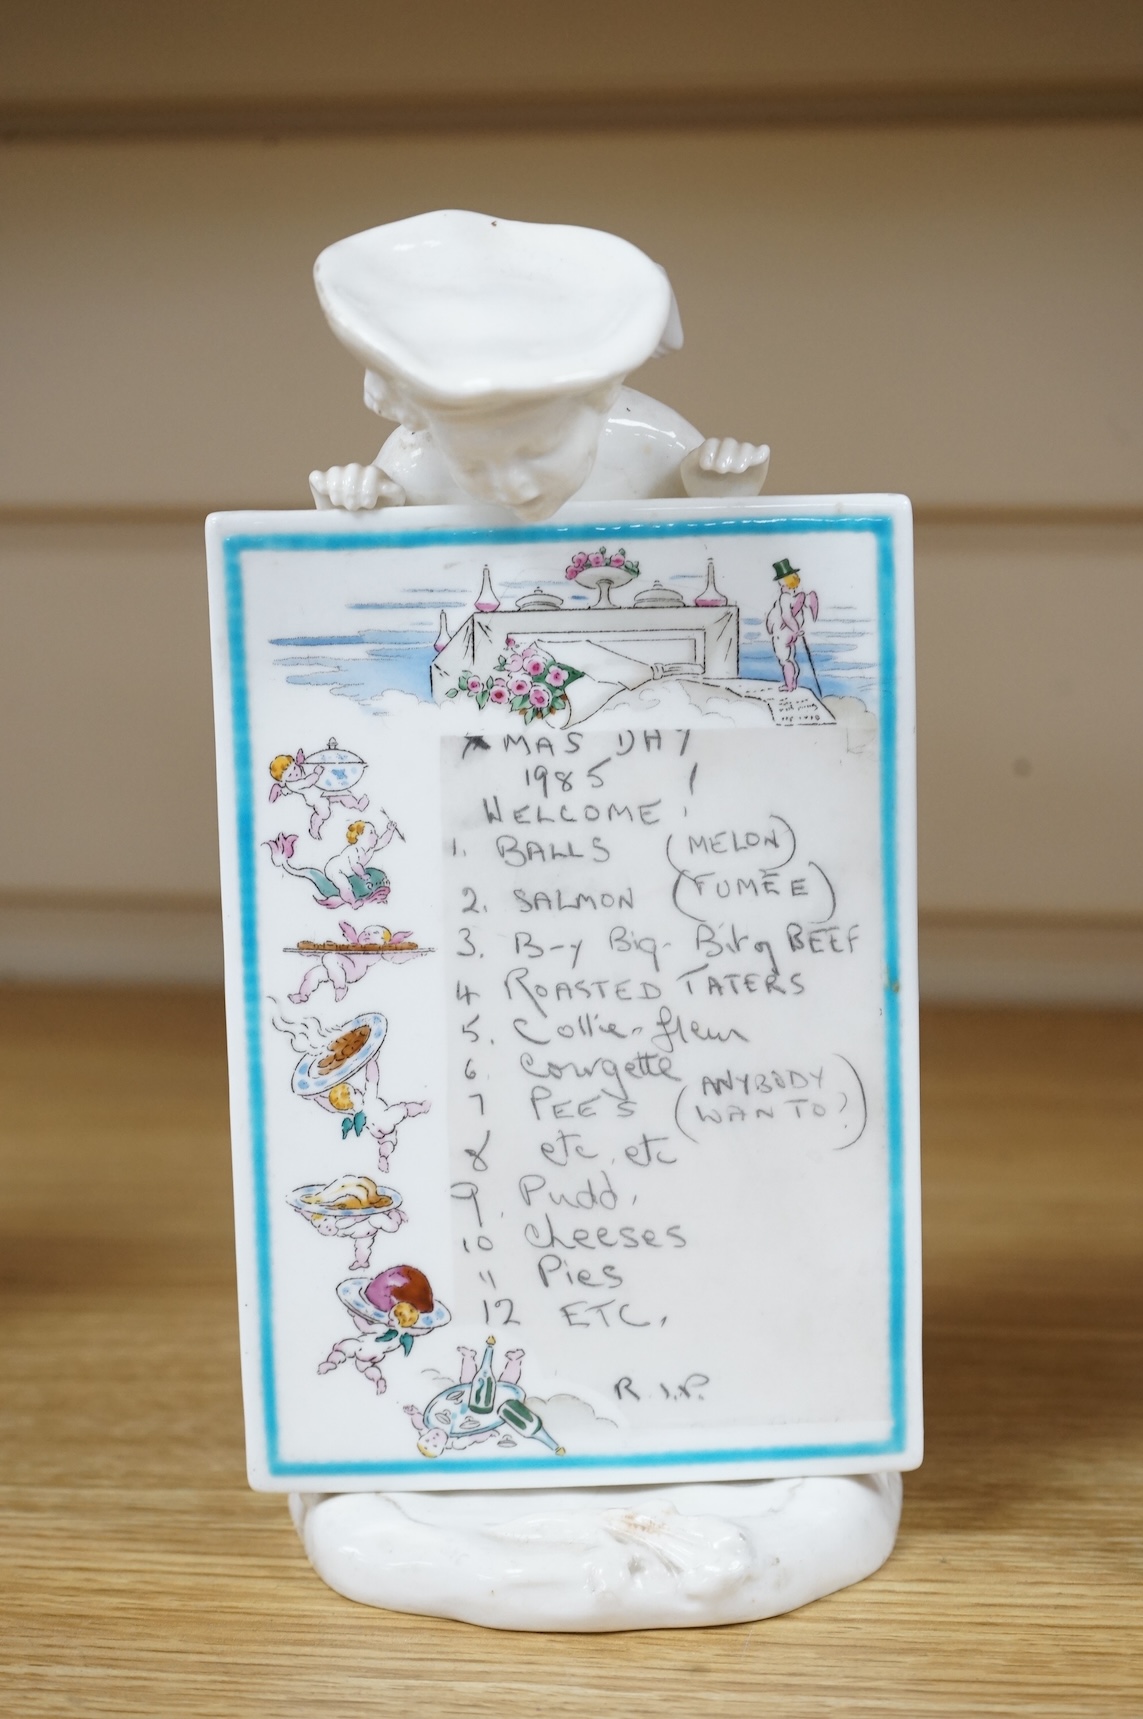 XMAS DAY
1985 !
WELCOME !
1. BALLS (MELON)
2. SALMON (FUMÉE)
3. B-y Big- Bit of BEEF
4 ROASTED TATERS
5. Collie-fleur
6. Courgette
7 PEE'S (ANYBODY WANTO?)
8 etc. etc
9. Pudd.
10 cheeses
11 Pies
12 ETC.
R.I.P.